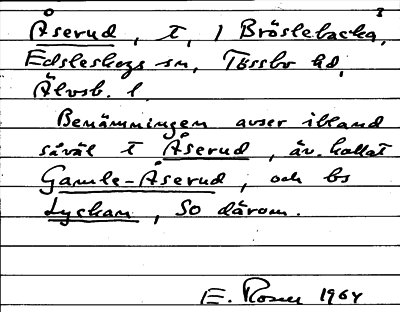 Åserud, t, 1 Bröslebacka,
Edsleskogs sn, Tössbo hd,
Älvsb. l.
Benämningen avser ibland
såväl t Åserud, äv. kallat
Gamle-Åserud, och bs
Lyckan, SO därom.
E. Rosen 1964